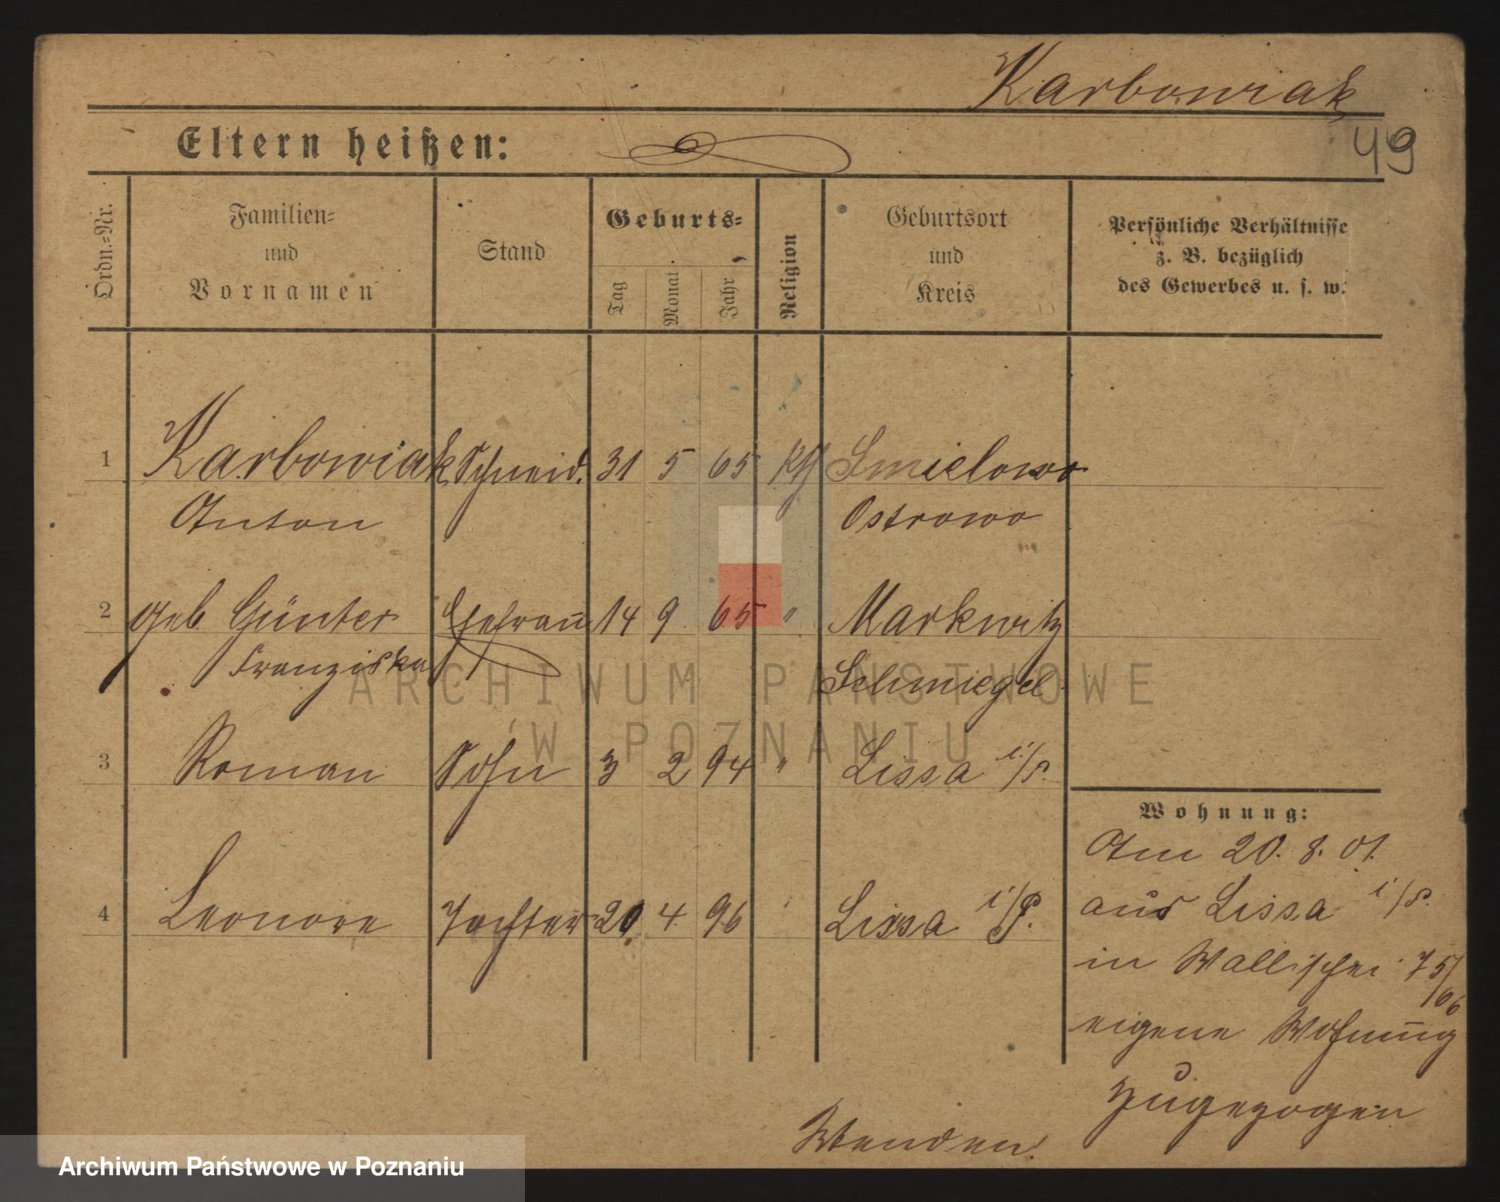 Karbowiak
49
Eltern heißen:
Ordn.-Nr.
Familien-
und
Vornamen
Stand
Geburts-
Tag
Monat
Jahr
Religion
Geburtsort
und
Kreis
Persönliche Verhältnisse
z. B. bezüglich
des Gewerbes u. s. w.
1 Karbowiak Schneid. 31 5 65 kth Smielowo
Anton Ostrowo
2 geb Günter Ehefrau 14 9 65 " Markwitz
Franziska Schmiegel
3 Roman Sohn 3 2 94 " Lissa i/P.
4 Leonore Tochter 20 4 96 " Lissa i/P.
Wohnung:
Am 20. 8. 01.
aus Lissa i/P.
in Wallischei 75/66
eigene Wohnung
zugezogen
Wenden!
ARCHIWUM PAŃSTWOWE
W POZNANIU
Archiwum Państwowe w Poznaniu